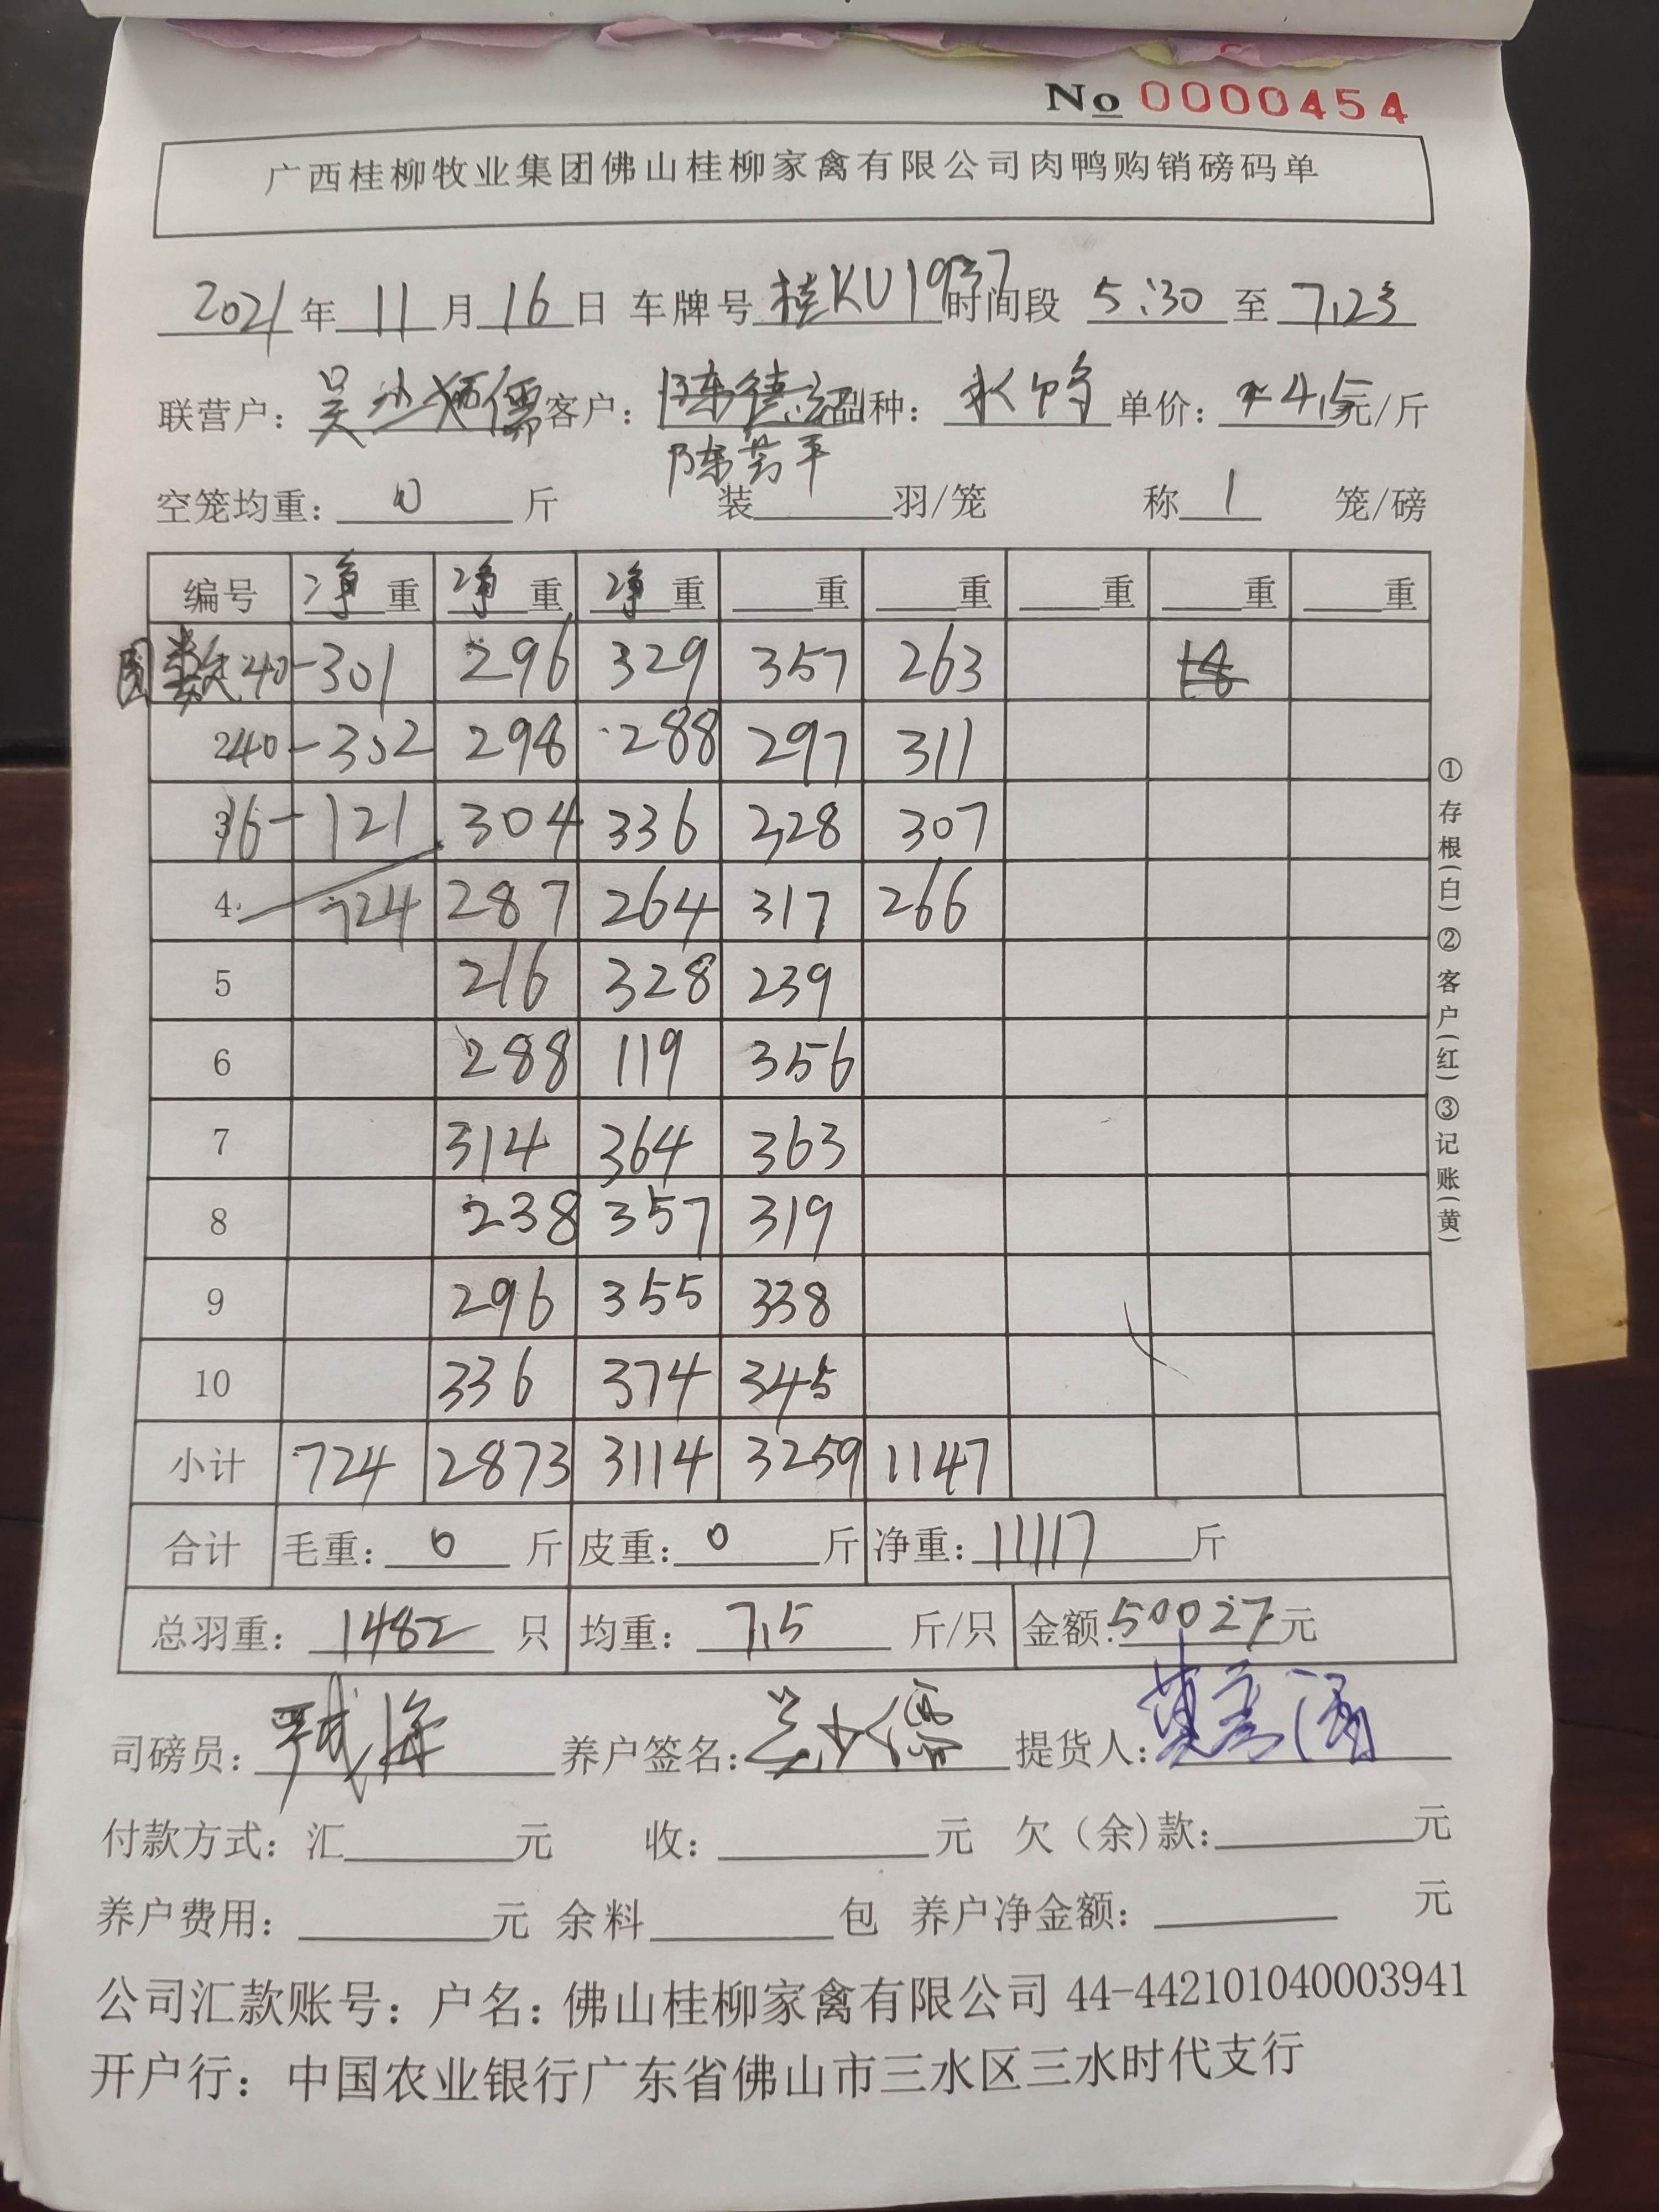 No 0000454
广西桂柳牧业集团佛山桂柳家禽有限公司肉鸭购销磅码单
2021 年 11 月 16 日 车牌号 桂KU1937 时间段 5:30 至 7.23
联营户: 吴 儒 客户: 陈德 品种: 水鸭 单价: 4.5 元/斤
陈芳平
空笼均重: 0 斤 装 羽/笼 称 1 笼/磅
编号 净重 净重 净重 重 重 重 重 重
围数 40-301 296 329 357 263 18
2 40-302 298 288 297 311
3 16-121 304 336 328 307
4 724 287 264 317 266
5 216 328 239
6 288 119 356
7 314 364 363
8 238 357 319
9 296 355 338
10 336 374 345
小计 724 2873 3114 3259 1147
合计 毛重: 0 斤 皮重: 0 斤 净重: 11117 斤
总羽重: 1482 只 均重: 7.5 斤/只 金额: 50027 元
司磅员: 海 养户签名: 儒 提货人:
付款方式: 汇 元 收: 元 欠(余)款: 元
养户费用: 元 余料 包 养户净金额: 元
公司汇款账号: 户名: 佛山桂柳家禽有限公司 44-442101040003941
开户行: 中国农业银行广东省佛山市三水区三水时代支行
①存根(白)②客户(红)③记账(黄)